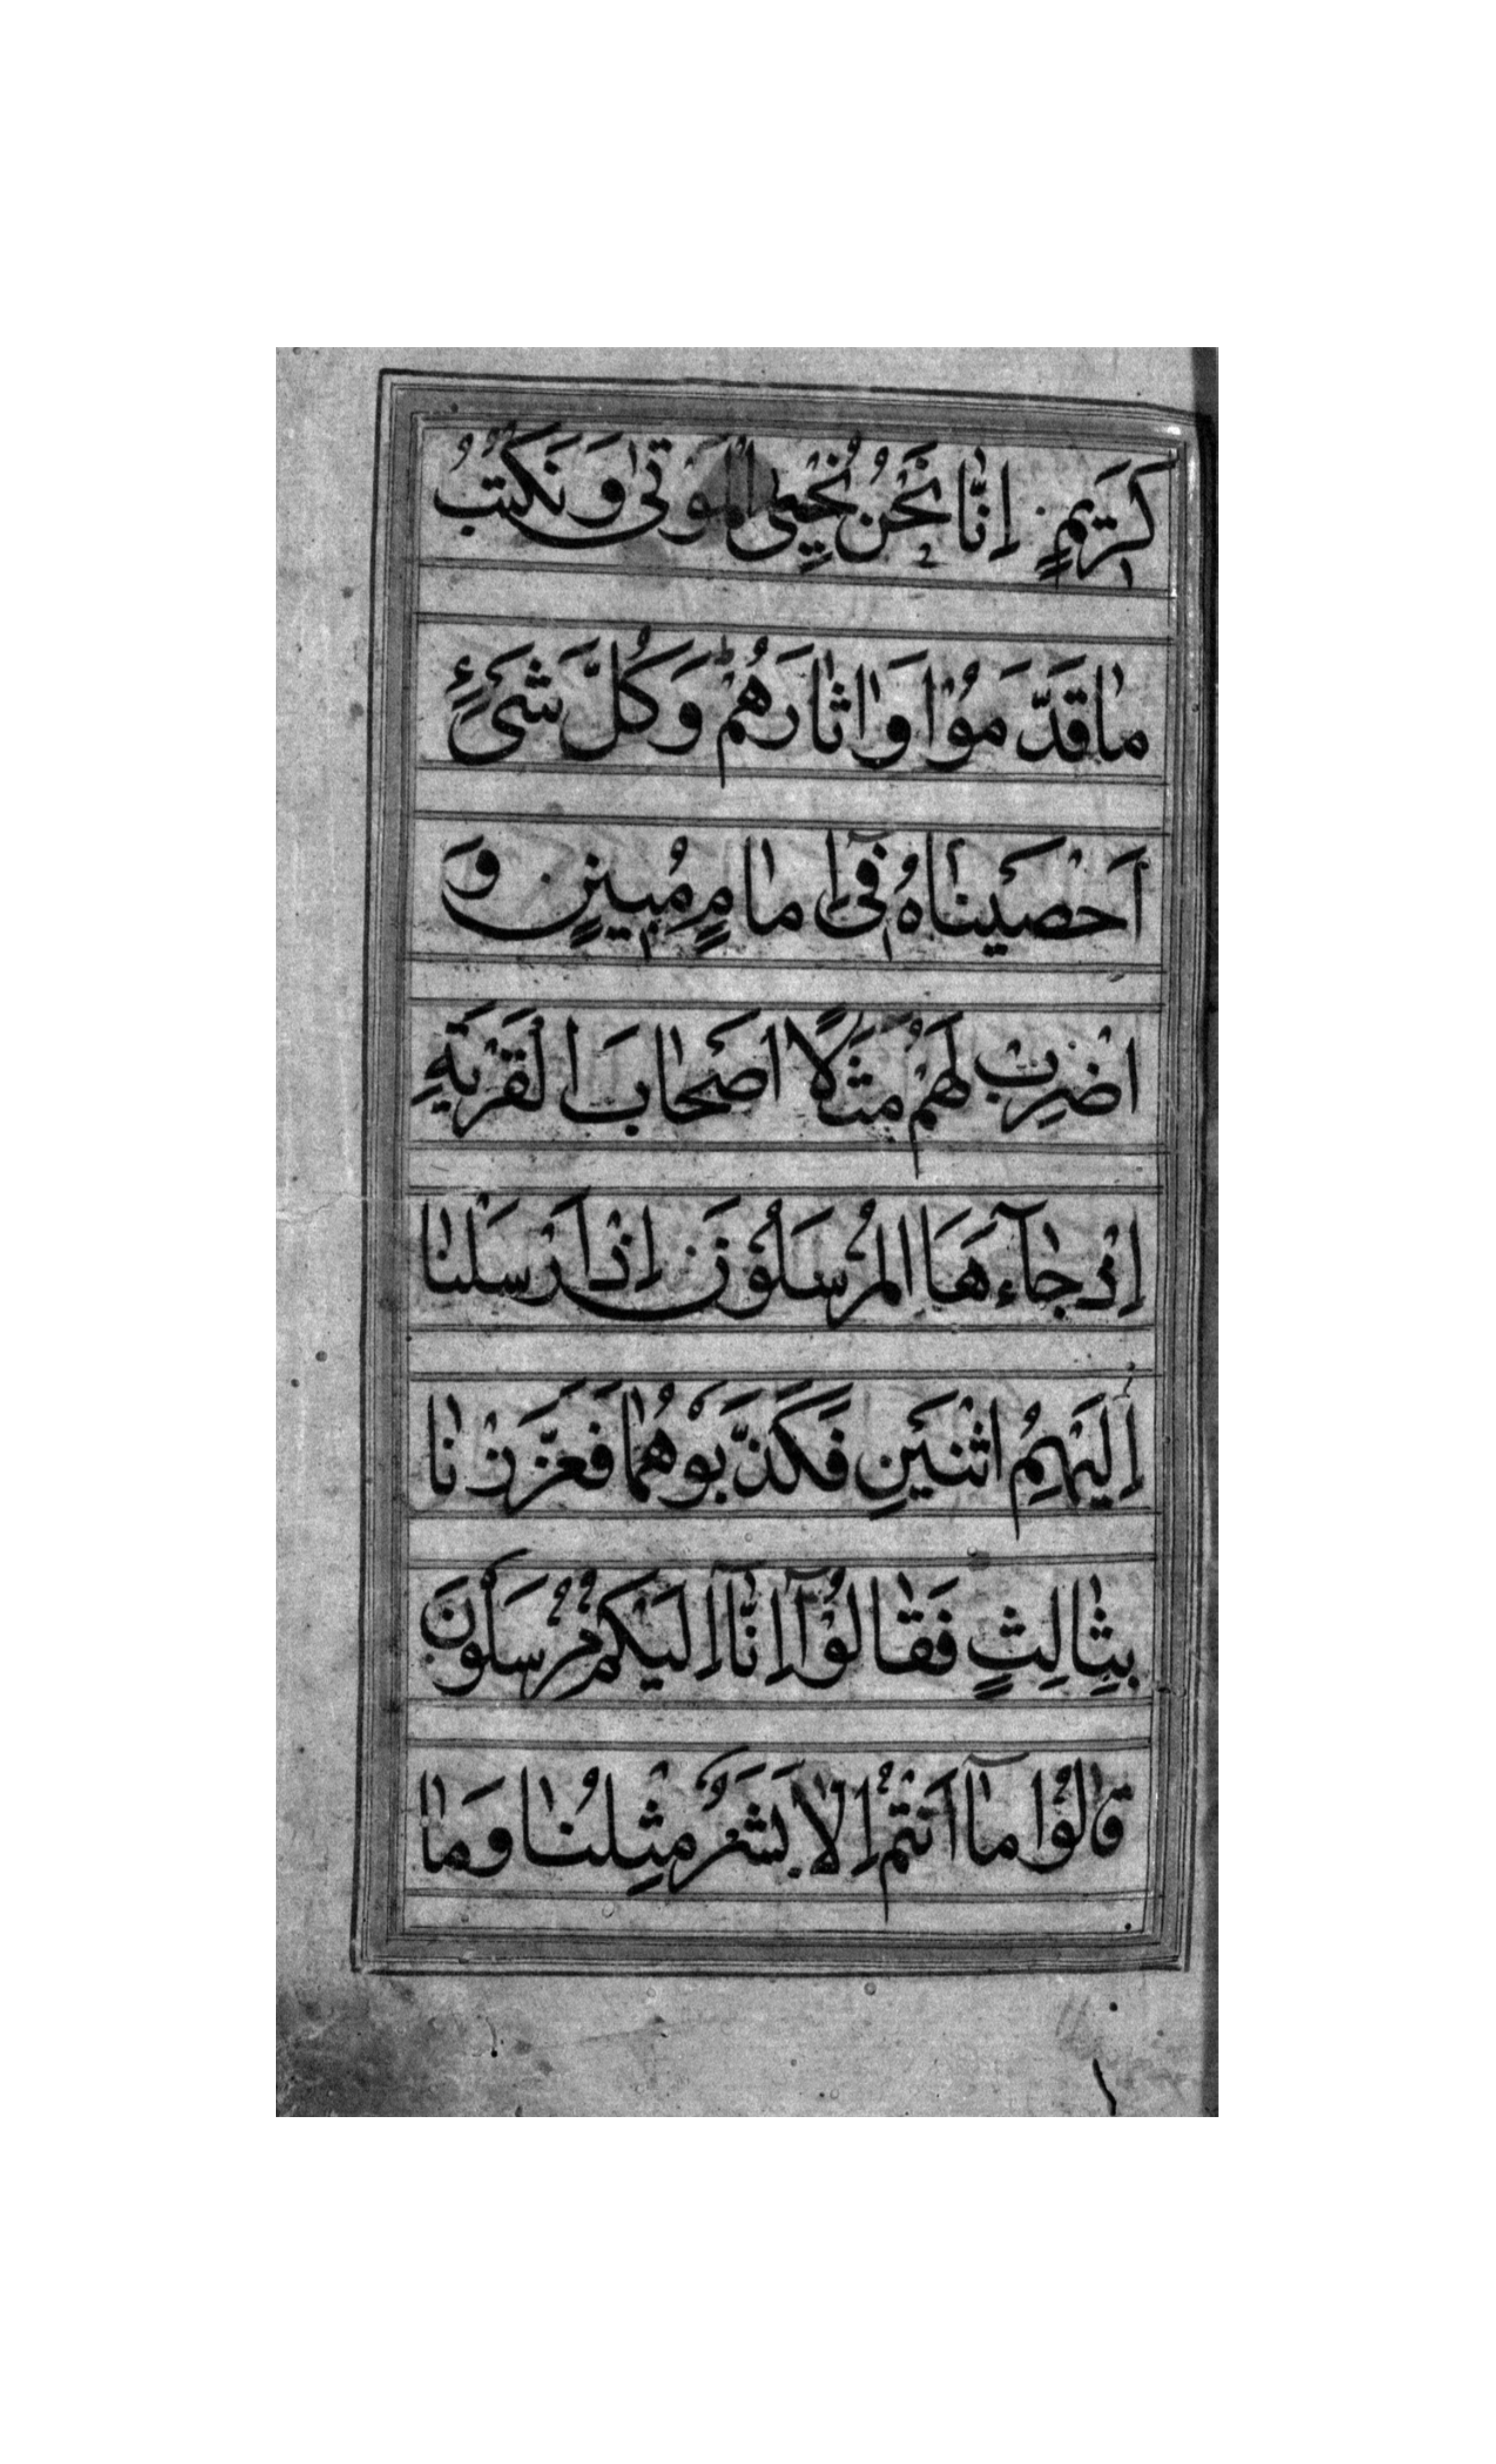 كَرِيمٍ اِنَّا نَحْنُ نُحْيِي الْمَوْتٰى وَنَكْتُبُ
مٰا قَدَّمُوْا وَاٰثٰارَهُمْ ط وَكُلَّ شَيْءٍ
اَحْصَيْنٰاهُ فِيٓ اِمٰامٍ مُبِينٍ وَ
اضْرِبْ لَهُمْ مَثَلًا اَصْحٰابَ الْقَرْيَةِ
اِذْ جٰآءَهَا الْمُرْسَلُوْنَ اِذْ اَرْسَلْنٰا
اِلَيْهِمُ اثْنَيْنِ فَكَذَّبُوْهُمٰا فَعَزَّزْنٰا
بِثٰالِثٍ فَقٰالُوْٓا اِنّٰآ اِلَيْكُمْ مُرْسَلُوْنَ
قٰالُوْا مٰآ اَنْتُمْ اِلّٰا بَشَرٌ مِثْلُنٰا وَمٰا
١